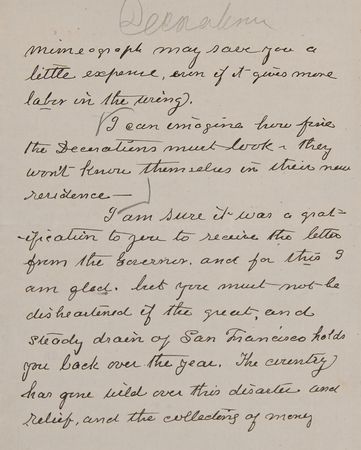 Decorations
mimeograph may save you a
little expense, even if it gives more
labor in the using.
I can imagine how fine
the Decorations must look - they
won't know themselves in their new
residence -
I am sure it was a grat-
-ification to you to receive the letter
from the Governor, and for this I
am glad. but you must not be
disheartened if the great, and
steady drain of San Francisco holds
you back over the year. The country
has gone wild over this disaster and
relief, and the collecting of money